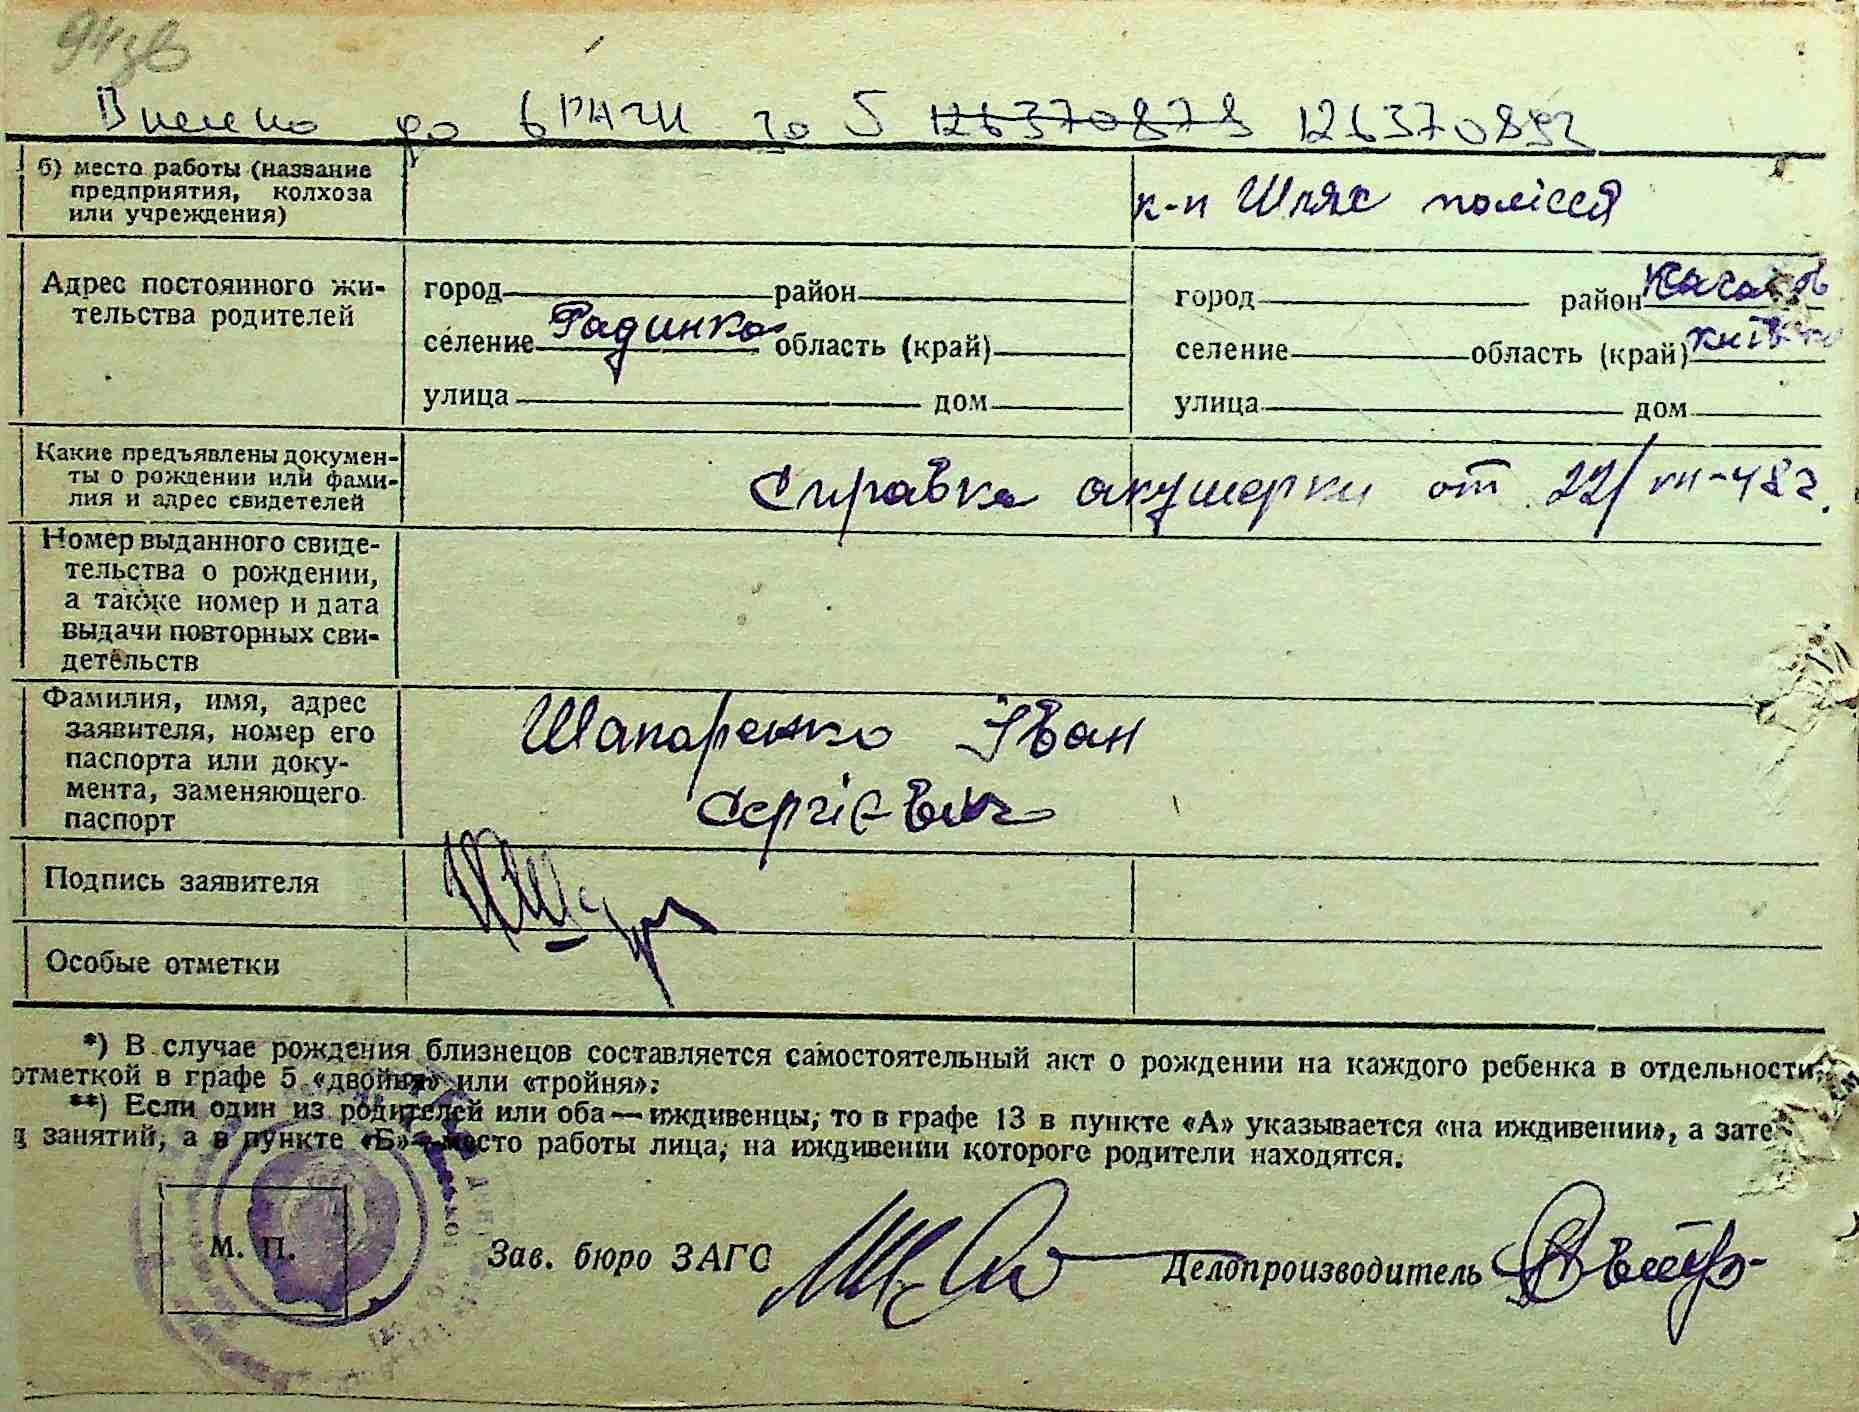 94зв
Внесено до ДРАЦС за № 126370878 126370892
б) место работы (название
предприятия, колхоза
или учреждения)
к-п Шлях полісся
Адрес постоянного жи-
тельства родителей
город район
селение Радинка область (край)
улица дом
город район
селение область (край)
улица дом
Какие предъявлены докумен-
ты о рождении или фами-
лия и адрес свидетелей
Справка акушерки от 22/VII-48г.
Номер выданного свиде-
тельства о рождении,
а также номер и дата
выдачи повторных сви-
детельств
Фамилия, имя, адрес
заявителя, номер его
паспорта или доку-
мента, заменяющего
паспорт
Шапоренко Іван
Сергієвич
Подпись заявителя
Особые отметки
*) В случае рождения близнецов составляется самостоятельный акт о рождении на каждого ребенка в отдельности,
отметкой в графе 5 «двойня» или «тройня».
**) Если один из родителей или оба — иждивенцы, то в графе 13 в пункте «А» указывается «на иждивении», а зате
д занятий, а в пункте «Б» — место работы лица, на иждивении которого родители находятся.
М. П.
Зав. бюро ЗАГС
Делопроизводитель